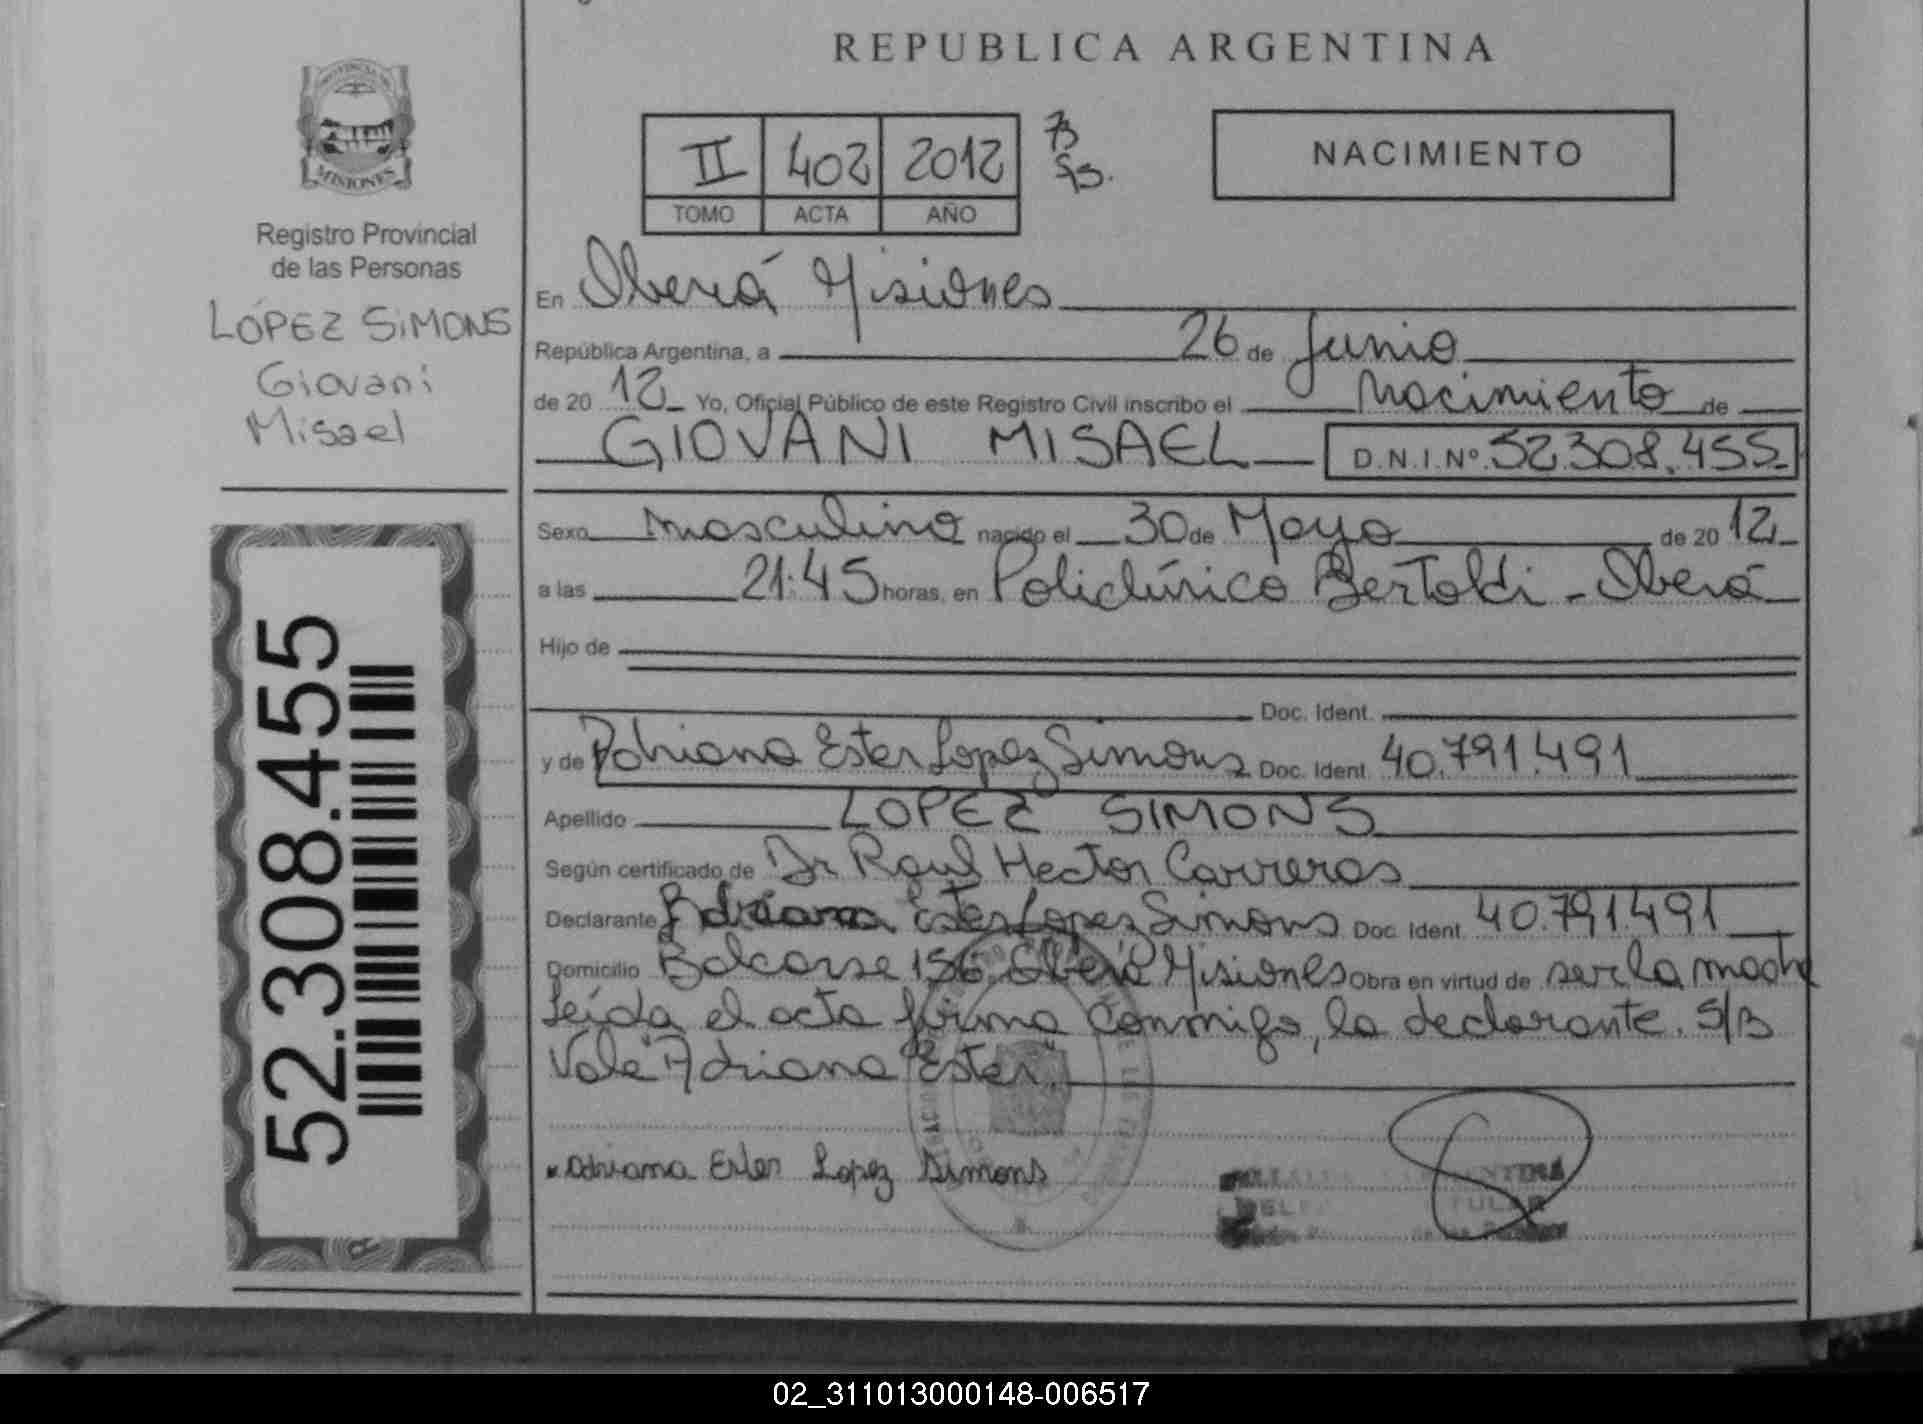 REPUBLICA ARGENTINA
PROVINCIA DE
MISIONES
Registro Provincial
de las Personas
LÓPEZ SIMONS
Giovani
Misael
52.308.455
II 402 2012
TOMO ACTA AÑO
NACIMIENTO
En Oberá Misiones
República Argentina, a 26 de Junio
de 20 12 Yo, Oficial Público de este Registro Civil inscribo el Nacimiento de
GIOVANI MISAEL D.N.I.Nº. 52.308.455
Sexo masculino nacido el 30 de Mayo de 20 12
a las 21:45 horas, en Policlínico Bertoldi - Oberá
Hijo de
Doc. Ident.
y de Adriana Ester Lopez Simons Doc. Ident. 40.791.491
Apellido LOPEZ SIMONS
Según certificado de Dr Raul Hector Carreras
Declarante Adriana Ester Lopez Simons Doc. Ident. 40.791.491
Domicilio Balcarse 156. Oberá Misiones Obra en virtud de ser la madre
Leída el acta firma conmigo, la declarante. S/B
Vale "Adriana Ester"
Adriana Ester Lopez Simons
02_311013000148-006517